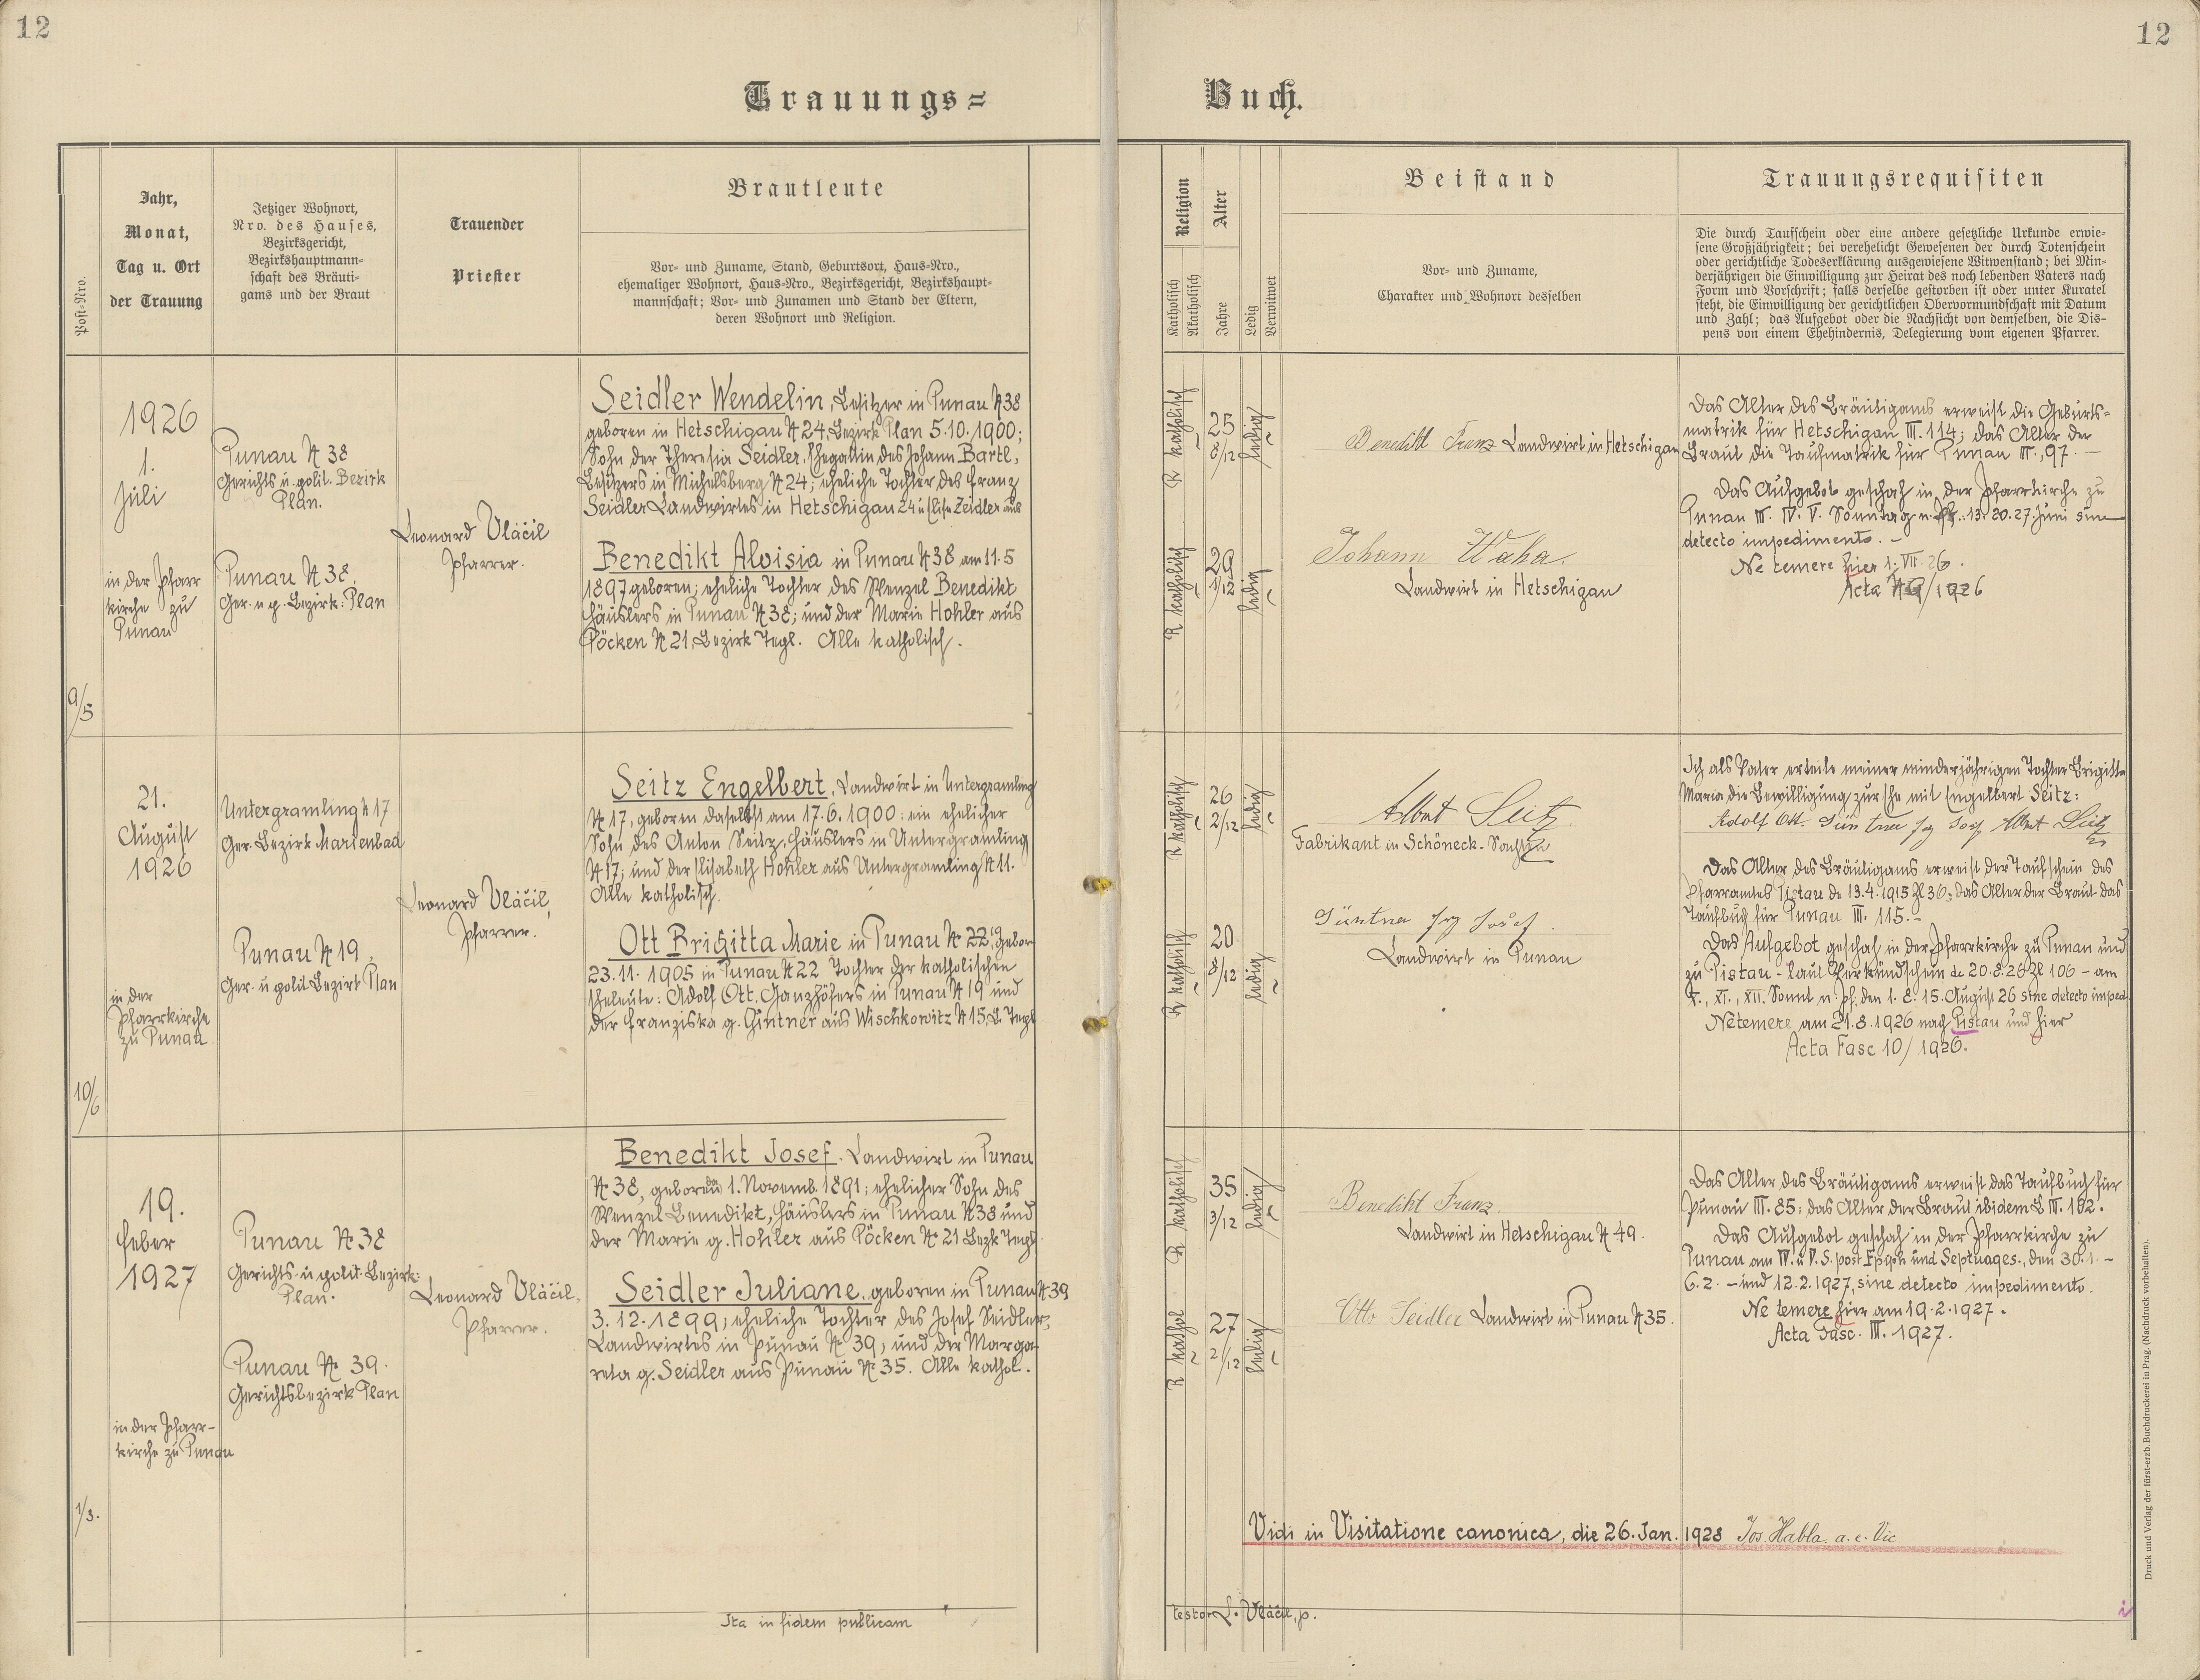 12
12
Trauungs=
Buch.
Post-Nro.
Jahr,
Monat,
Tag u. Ort
der Trauung
Jetziger Wohnort,
Nro. des Hauses,
Bezirksgericht,
Bezirkshauptmann-
schaft des Bräuti-
gams und der Braut
Trauender
Priester
Brautleute
Vor- und Zuname, Stand, Geburtsort, Haus-Nro.,
ehemaliger Wohnort, Haus-Nro., Bezirksgericht, Bezirkshaupt-
mannschaft; Vor- und Zunamen und Stand der Eltern,
deren Wohnort und Religion.
Religion
Katholisch
Akatholisch
Alter
Jahre
Ledig
Verwitwet
Beistand
Vor- und Zuname,
Charakter und Wohnort desselben
Trauungsrequisiten
Die durch Taufschein oder eine andere gesetzliche Urkunde erwie-
sene Großjährigkeit; bei verehelicht Gewesenen der durch Totenschein
oder gerichtliche Todeserklärung ausgewiesene Witwenstand; bei Min-
derjährigen die Einwilligung zur Heirat des noch lebenden Vaters nach
Form und Vorschrift; falls derselbe gestorben ist oder unter Kuratel
steht, die Einwilligung der gerichtlichen Obervormundschaft mit Datum
und Zahl; das Aufgebot oder die Nachsicht von demselben, die Dis-
pens von einem Ehehindernis, Delegierung vom eigenen Pfarrer.
9/5
1926
1.
Juli
in der Pfarr
kirche zu
Punau
Punau № 38
Gerichts u. polit. Bezirk
Plan.
Punau № 38.
Ger. u. p. Bezirk: Plan
Leonard Vláčil
Pfarrer.
Seidler Wendelin, Besitzer in Punau № 38
geboren in Hetschigau № 24, Bezirk Plan 5.10.1900;
Sohn der Theresia Seidler, Ehegattin des Johann Bartl,
Besitzers in Michelsberg № 24; eheliche Tochter des Franz
Seidler Landwirtes in Hetschigau 24 u. Elise Zeidler aus
Benedikt Aloisia in Punau № 38 am 11.5
1897 geboren; eheliche Tochter des Wenzel Benedikt
Häuslers in Punau № 38; und der Marie Hohler aus
Pöcken № 21, Bezirk Tepl. Alle katholisch.
R katholisch
25
8/12
ledig
R katholisch
29
1/12
ledig
Benedikt Franz Landwirt in Hetschigau
Johann Waha.
Landwirt in Hetschigau
Das Alter des Bräutigams erweist die Geburts=
matrik für Hetschigau III. 114; das Alter der
Braut die Taufmatrik für Punau III., 97. –
Das Aufgebot geschah in der Pfarrkirche zu
Punau III. IV. V. Sonntag n. Pf.: 13. 20. 27. Juni sine
detecto impedimento. –
Ne temere hier 1. VII. 26.
Acta № 9/1926
10/6
21.
August
1926
in der
Pfarrkirche
zu Punau
Untergramling № 17
Ger. Bezirk Marienbad
Punau № 19,
Ger. u polit Bezirk Plan
Leonard Vláčil,
Pfarrer.
Seitz Engelbert, Landwirt in Untergramling
№ 17, geboren daselbst am 17.6.1900: ein ehelicher
Sohn des Anton Seitz, Häuslers in Untergramling
№ 17; und der Elisabeth Hohler aus Untergramling № 11.
Alle katholisch.
Ott Brigitta Marie in Punau № 22, gebor
23.11.1905 in Punau № 22 Tochter der katholischen
Eheleute: Adolf Ott, Ganzhöfers in Punau № 19 und
der Franziska g. Gintner aus Wischkowitz № 15, B. Tepl
R katholisch
26
2/12
ledig
R katholisch
20
8/12
ledig
Albert Seitz
Fabrikant in Schöneck-Sachsen
Josef.
Landwirt in Punau
Ich als Vater erteile meiner minderjährigen Tochter Brigitta
Maria die Bewilligung zur Ehe mit Engelbert Seitz:
Adolf Ott. Albert Seitz
Das Alter des Bräutigams erweist der Taufschein des
Pfarramtes Pistau de 13.4.1915 Zl 36, das Alter der Braut das
Taufbuch für Punau III. 115. –
Das Aufgebot geschah in der Pfarrkirche zu Punau und
zu Pistau - laut Verkündschein de 20.8.26 Zl 106 – am
X., XI., XII. Sonnt n. Pf. den 1. 8. 15. August 26 sine detecto imped.
Ne temere am 21.8.1926 nach Pistau und hier
Acta Fasc 10/1926.
1/3.
19.
Feber
1927
in der Pfarr-
kirche zu Punau
Punau № 38
Gerichts- u polit. Bezirk:
Plan.
Punau № 39.
Gerichtsbezirk Plan
Leonard Vláčil,
Pfarrer.
Benedikt Josef. Landwirt in Punau
№ 38, geboren da 1. Novemb. 1891; ehelicher Sohn des
Wenzel Benedikt, Häuslers in Punau № 38 und
der Marie g. Hohler aus Pöcken № 21 Bezk Tepl
Seidler Juliane, geboren in Punau № 39
3.12.1899; eheliche Tochter des Josef Seidler,
Landwirtes in Punau № 39; und der Marga-
reta g. Seidler aus Punau № 35. Alle kathol.
R katholisch
35
3/12
ledig
R kathol
27
2/12
ledig
Benedikt Franz.
Landwirt in Hetschigau № 49.
Otto Seidler Landwirt in Punau № 35.
Das Alter des Bräutigams erweist das Taufbuch für
Punau III. 85; das Alter der Braut ibidem B III. 102.
Das Aufgebot geschah in der Pfarrkirche zu
Punau am IV. u V. S. post Epiph und Septuages., den 30.1. –
6.2. – und 12.2.1927, sine detecto impedimento.
Ne temere hier am 19.2.1927.
Acta Fasc. III. 1927.
Vidi in Visitatione canonica, die 26. Jan. 1928 Jos. Habla. a. e. Vic
Ita in fidem publicam
testor L. Vláčil, p.
Druck und Verlag der fürst-erzb. Buchdruckerei in Prag. (Nachdruck vorbehalten).